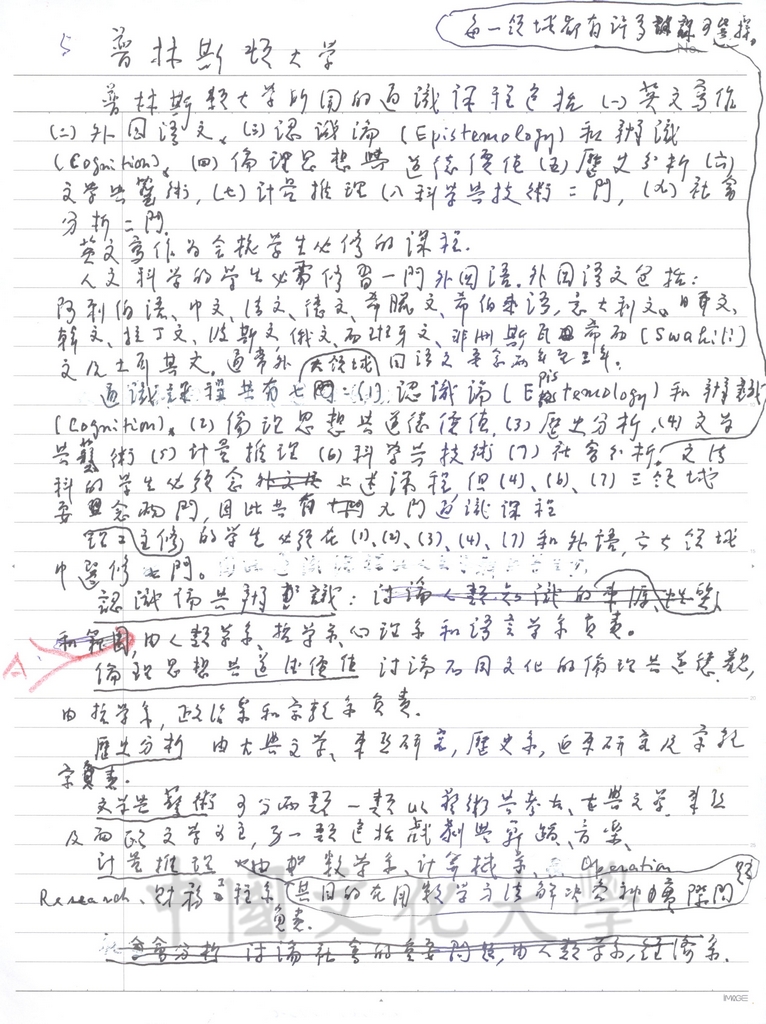 每一領域都有許多課可選擇。
5 普林斯頓大学
普林斯頓大学所開的通識課程包括 (一) 英文寫作
(二) 外国語文、(三) 認識論 (Epistemology) 和辨識
(Cognition)、(四) 倫理思想與道德價值 (五) 歷史分析 (六)
文学与藝術, (七) 计量推理 (八) 科学与技術二門, (九) 社會
分析二門.
英文寫作为全校学生必修的课程.
人文科学的学生必需修習一門外国语. 外国语文包括:
阿剌伯语、中文、法文、德文、希臘文、希伯來语, 意大利文、日本文、
韓文、拉丁文、波斯文、俄文、西班牙文、非洲斯瓦希而 (Swahili)
文及土耳其文。通常外国語文要念
大領域
通識課程共有七門: (1) 認識論 (Epistemology) 和辨識
(Cognition)、(2) 倫理思想与道德價值, (3) 歷史分析, (4) 文学
与藝術 (5) 计量推理 (6) 科学与技術 (7) 社會分析。文法
科的学生必须念上述课程, 但 (4)、(6)、(7) 三領域
要念兩門, 因此共有九門通識课程
理工主修的学生必须在 (1)、(2)、(3)、(4)、(7) 和外语, 六大領域
中選修七門。
認識論与辨識: 讨論人類知識的來源、性質、
和範圍, 由人類学系、哲学系、心理系和语言学系負責。
倫理思想与道德價值 讨論不同文化的倫理与道德觀,
由哲学系, 政治系和宗教系負責.
歷史分析 由古典文学、東亞研究, 歷史系, 近東研究及宗教
系負責.
文学与藝術 可分兩類 一類以藝術与考古、古典文学、東亞
及西欧文学为主, 另一類包括戲劇與舞蹈、音楽.
计量推理 由数学系、计算机系、Operation
Research、財務工程系 其目的在用数学方法解決各种實際問題
負責.
社會分析 讨論社會的重要問題, 由人類学系, 经濟系.
中國文化大學
IMAGE